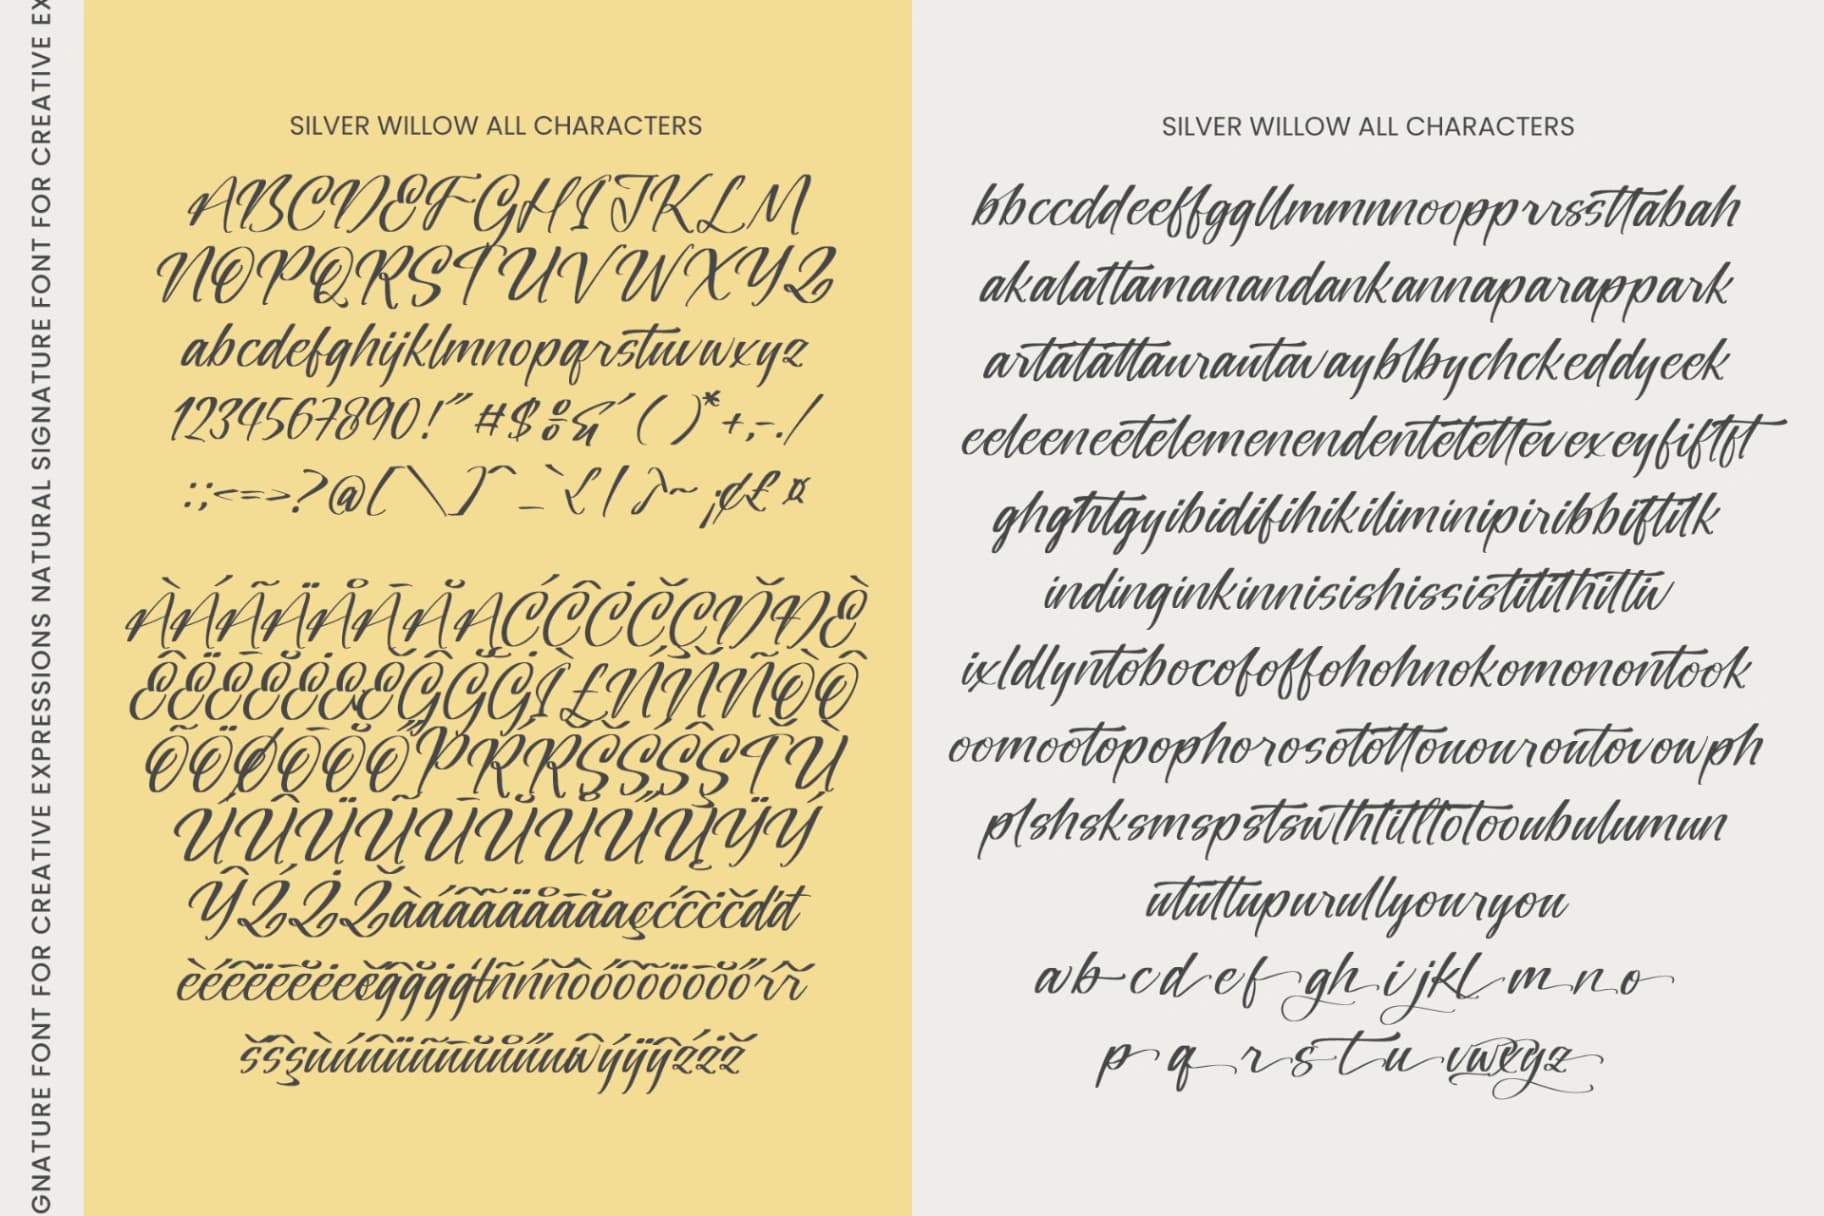 GNATURE FONT FOR CREATIVE EXPRESSIONS NATURAL SIGNATURE FONT FOR CREATIVE EX
SILVER WILLOW ALL CHARACTERS
ABCDEFGHIJKLM
NOPQRSTUVWXYZ
abcdefghijklmnopqrstuvwxyz
1234567890!"#$%&'()*+,-./
:;<=>?@[\]^_`{|}~¡¢£¤
ÀÁÃÄÅĀĂĄĆĈĊČÇĎĐÈ
ÚÛÜŨŪŬŮŰŲŸÝ
SILVER WILLOW ALL CHARACTERS
bbccddeeffggllmmnnoopprrssttabah
akalattamanandankannaparappark
artatattaurautavayblbychckeddyeek
eeleeneetelemenendentetettevexeyfiftft
ghghtgyibidifihikiliminipiribbiftilk
indinginkinnisishissistitithittiv
ixldlyntobocofoffohohnokomonontook
oomootopophorosotottouourroutovowph
plshsksmspstswthtitltotooubulumun
ututtupurullyouryou
abcdefghijklmno
pqrstuvwxyz